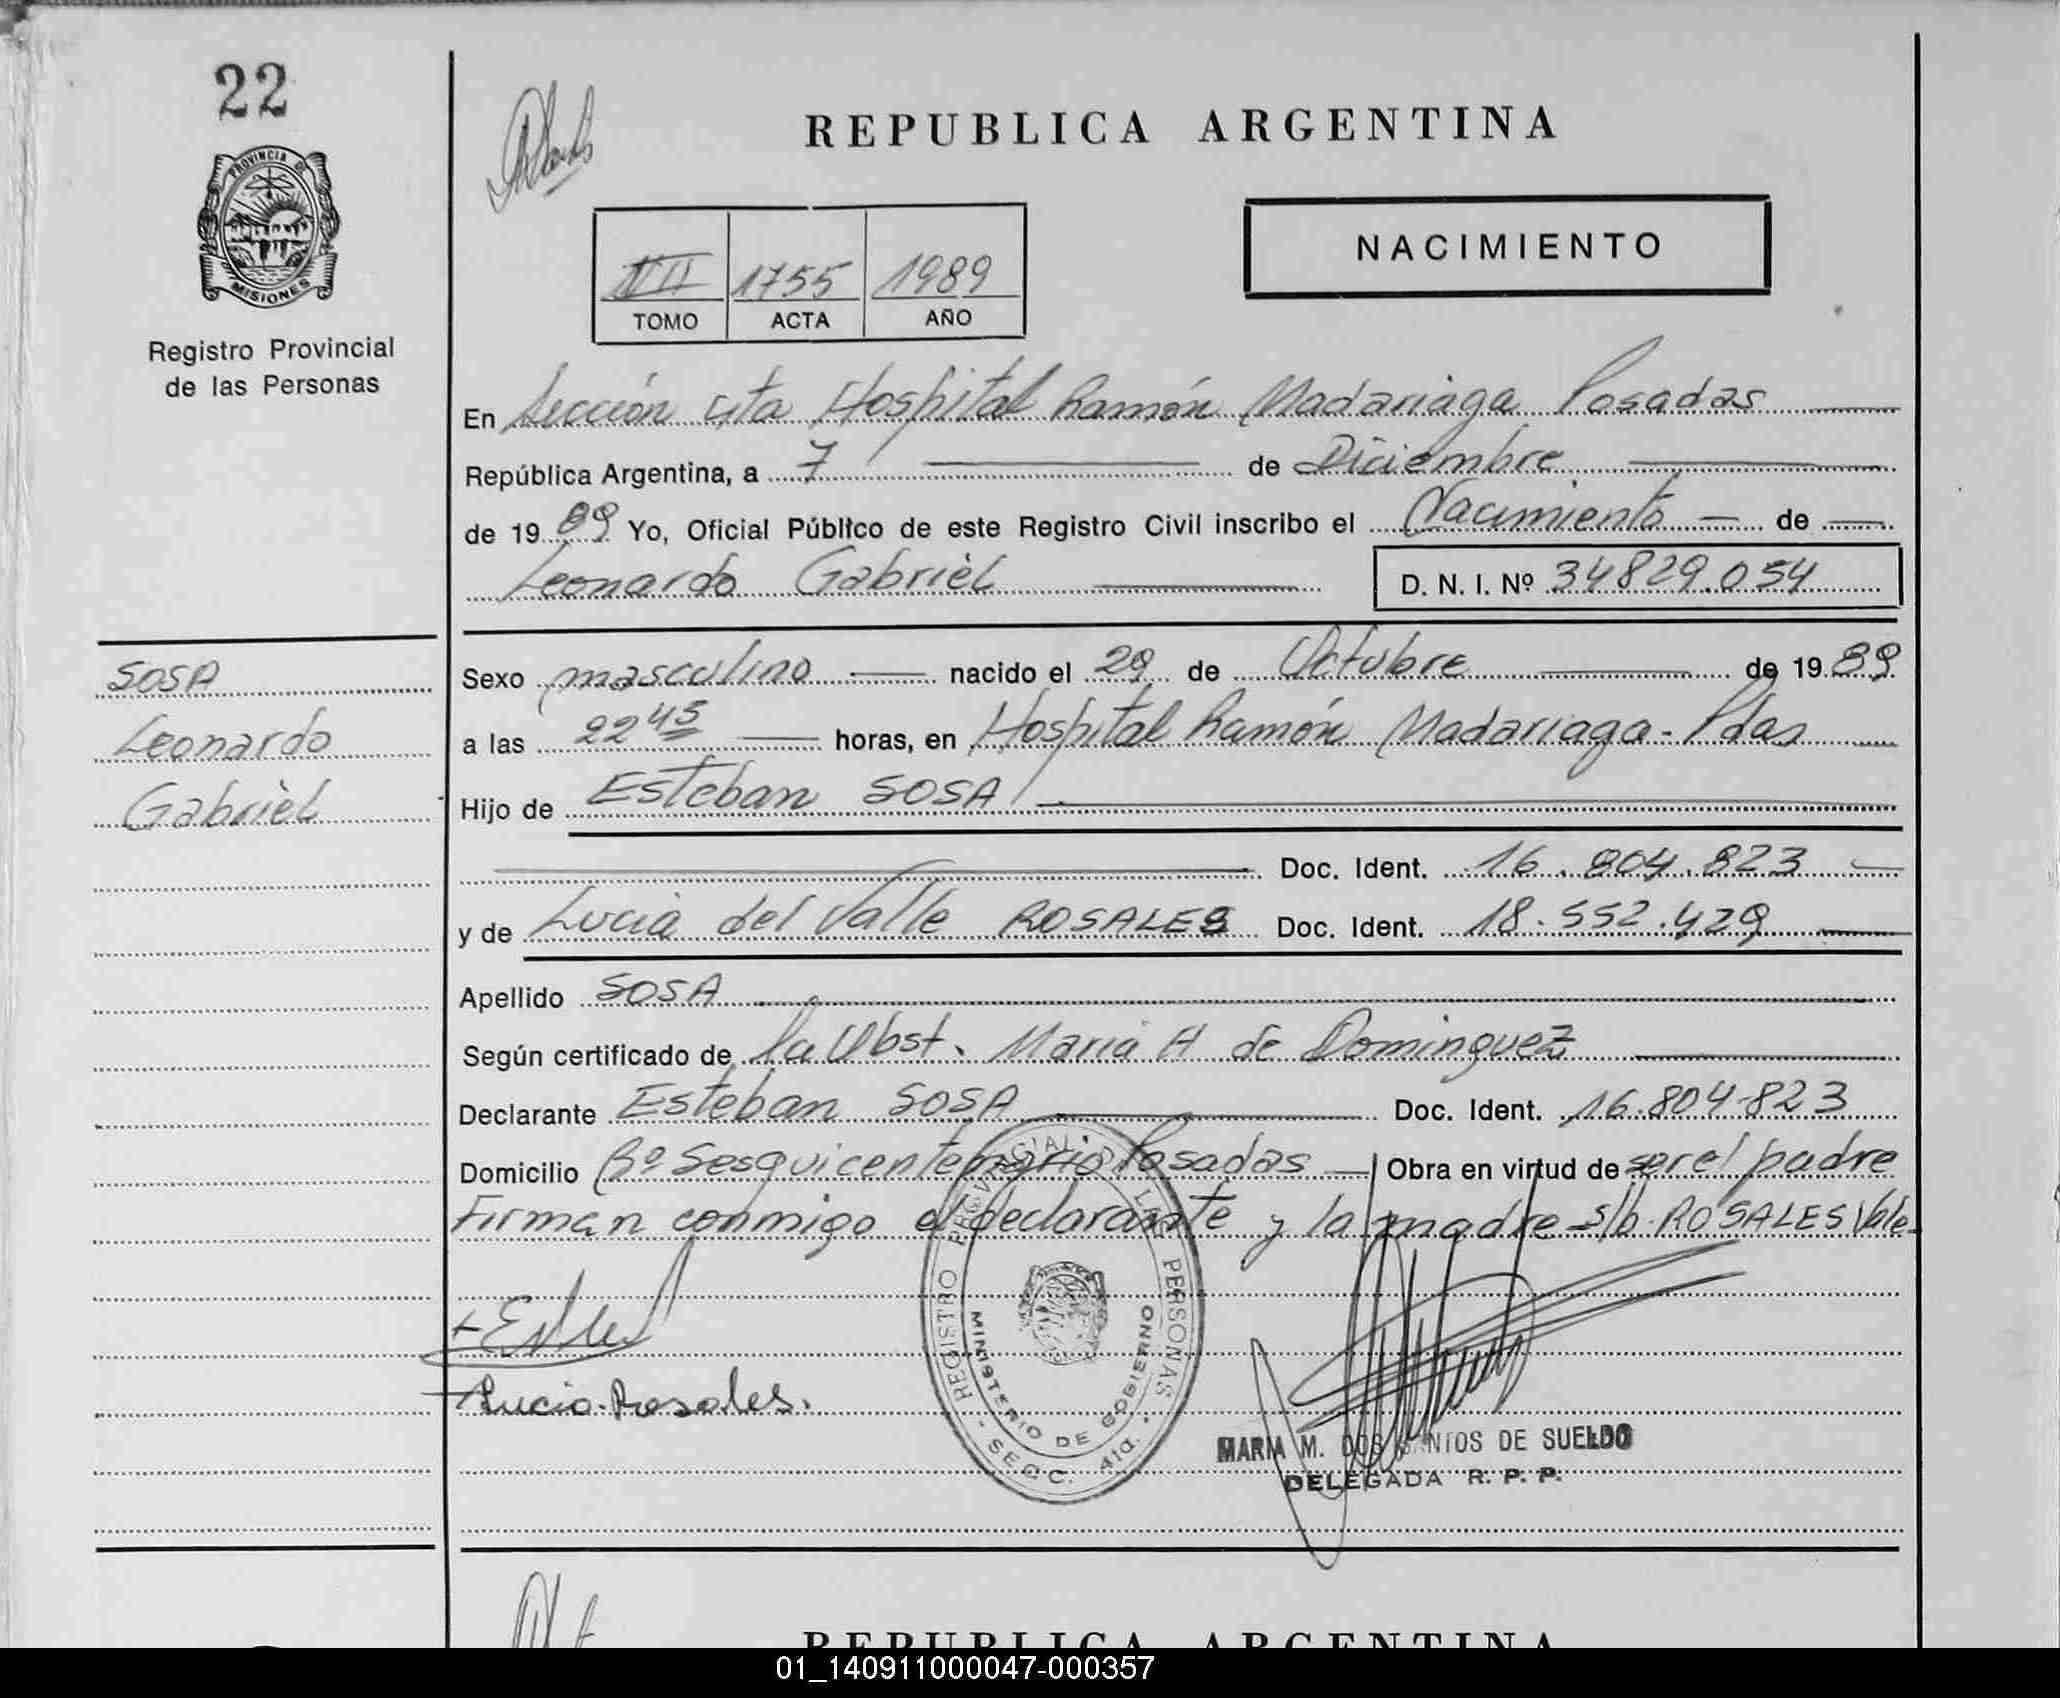 22
PROVINCIA DE
MISIONES
Registro Provincial
de las Personas
SOSA
Leonardo
Gabriel
REPUBLICA ARGENTINA
NACIMIENTO
VII 1755 1989
TOMO ACTA AÑO
En Sección 4ta Hospital Ramón Madariaga Posadas
República Argentina, a 7 de Diciembre
de 1989 Yo, Oficial Público de este Registro Civil inscribo el Nacimiento de
Leonardo Gabriel D. N. I. Nº 34829.054
Sexo masculino nacido el 29 de Octubre de 1989
a las 22 45 horas, en Hospital Ramón Madariaga - Pdas
Hijo de Esteban SOSA
Doc. Ident. 16.804.823
y de Lucia del Valle ROSALES Doc. Ident. 18.552.429
Apellido SOSA
Según certificado de la Obst. Maria A de Dominguez
Declarante Esteban SOSA Doc. Ident. 16.804.823
Domicilio Bº Sesquicentenario Posadas Obra en virtud de ser el padre
Firman conmigo el declarante y la madre s/b. ROSALES Vale
Lucia Rosales.
REGISTRO PROVINCIAL DE LAS PERSONAS
MINISTERIO DE GOBIERNO
- SECC. 4ta. -
MARIA M. DOS SANTOS DE SUELDO
DELEGADA R. P. P.
REPUBLICA ARGENTINA
01_140911000047-000357